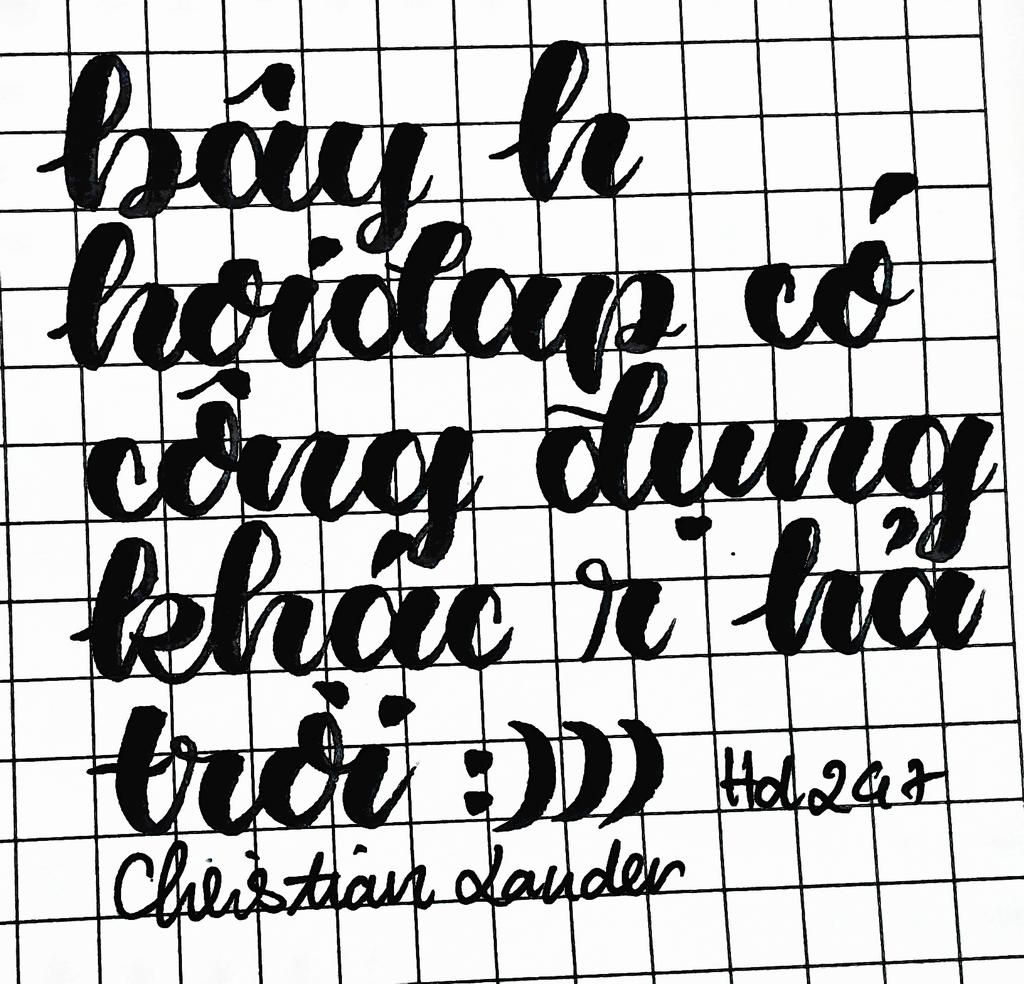 bây h
hơidap có
công dụng
khác r hả
trời :)))
Hd247
Christian Lauder